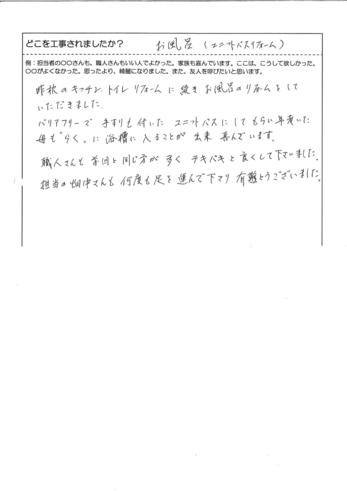 どこを工事されましたか？ お風呂 (ユニットバスリフォーム)
例：担当者の〇〇さんも。職人さんもいい人でよかった。家族も喜んでいます。ここは、こうして欲しかった。
〇〇がよくなかった。思ったより、綺麗になりました。また、友人を呼びたいと思います。
昨秋のキッチン トイレ リフォームに続き お風呂のリフォームをして
いただきました。
バリアフリーで 手すりも付いた ユニットバスにして もらい 年老いた
母も"らく。に 浴槽に 入ることが 出来 喜んでいます。
職人さんも 前回と同じ方が 多く テキパキと良くして下さいました。
担当の畑中さんも 何度も足を運んで下さり 有難とうございました。